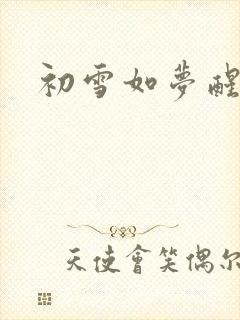 初雪如夢醒
天使會笑偶尔